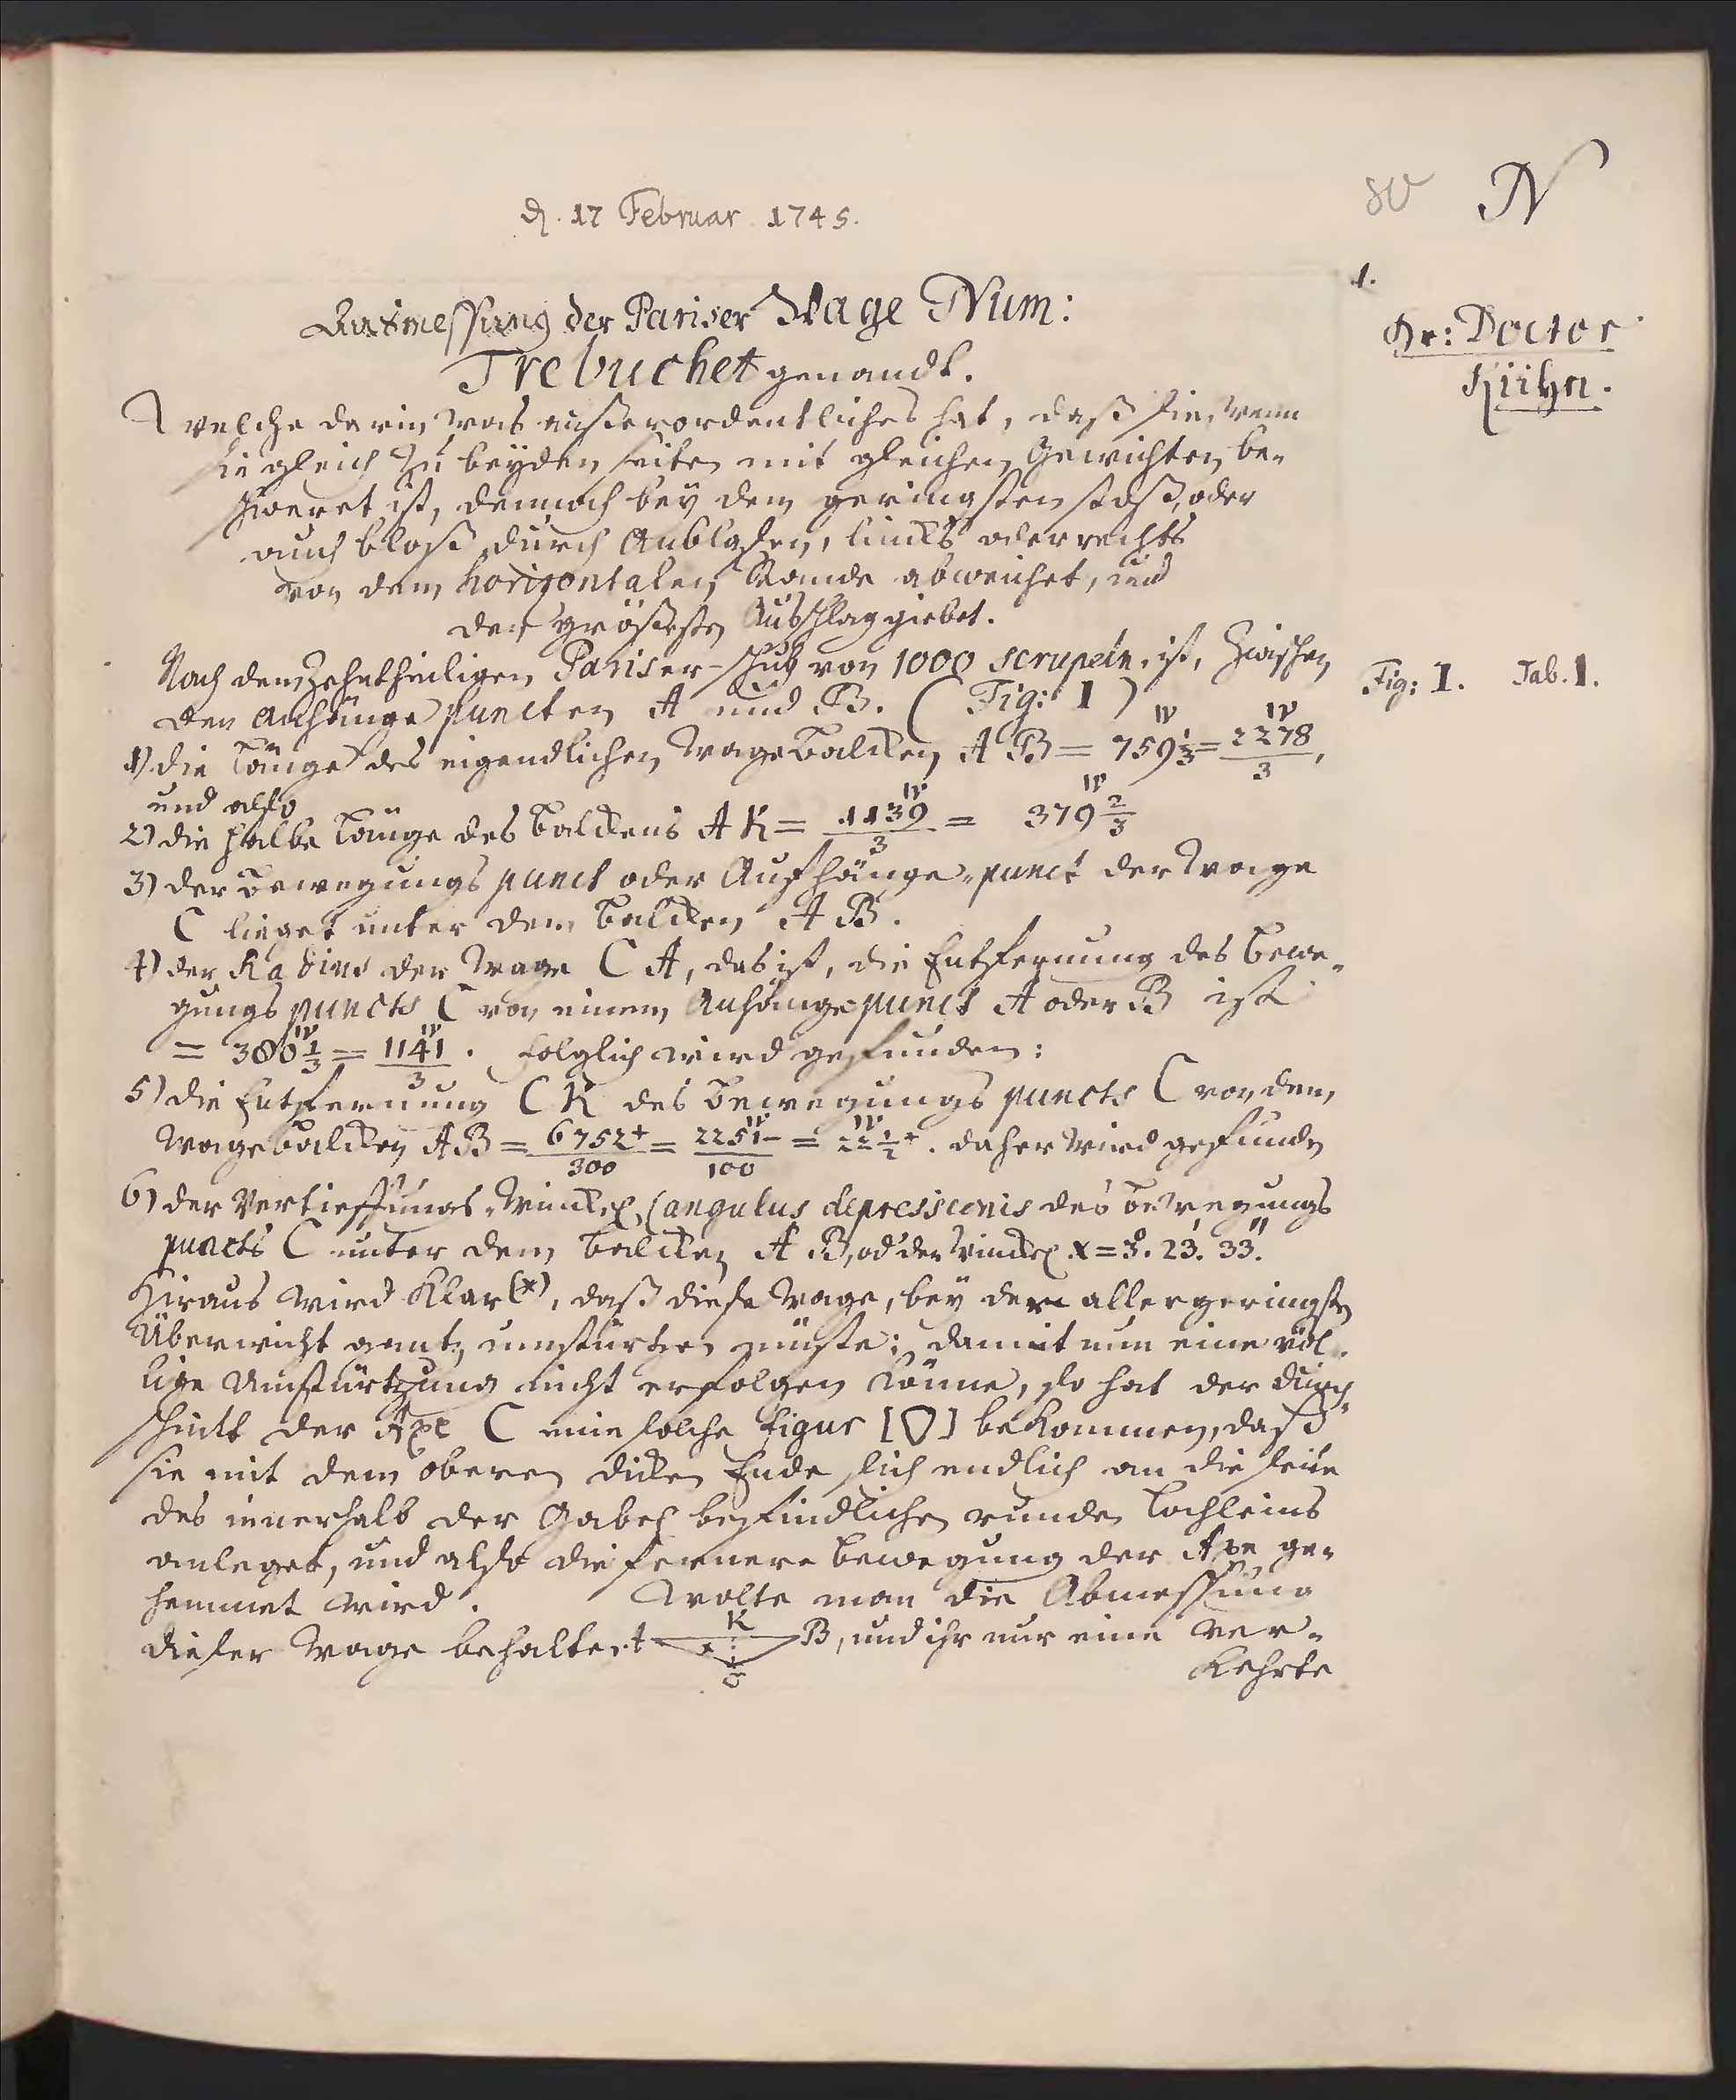 d. 17 Februar 1745.
80 N
1.
Hr: Doctor
Kühn.
Ausmessung der Pariser Wage Num:
Trebuchet genandt.
welche darin was außerordentliches hat, daß sie, wenn
sie gleich zu beyden seiten mit gleichen Gewichten be-
schweret ist, dennoch bey dem geringsten stoß, oder
auch bloß durch Anblasen, lincks oder rechts
von dem horizontalen Stande abweichet, und
den grösesten Ausschlag giebet.
Nach dem Zehntheiligen Pariser-schuh von 1000 scrupeln, ist, zwischen
den Anhänge puncten A und B. (Fig: I)
Fig: I. Tab. I.
1) die Länge des eigendlichen Wage Balcken A B = 759 1/3 ''' = 2278'''/3,
und also
2) die halbe Länge des Balckens A K = 1139'''/3 = 379 2/3 '''
3) der Bewegungs punct oder Aufhänge-punct der Wage
C lieget unter dem Balcken A B.
4) der Radius der Wage C A, das ist, die Entfernung des Bewe-
gungs puncts C von einem Anhänge punct A oder B ist
= 380 1/3 ''' = 1141'''/3. folglich wird gefunden:
5) die Entfernung C K des Bewegungs puncts C von dem
Wagebalcken A B = 6752+/300 = 2251'''-/100 = 22 1/2 '''+. daher wird gefunden
6) der Vertieffungs-Winckel, (angulus depressionis des Bewegungs
puncts C unter dem Balcken A B, od' der Winckel x = 3°. 23.' 33.''
Hiraus wird klar (*), daß diese Wage, bey dem allergeringsten
Überwicht gantz umstürtzen müste; damit nun eine völ-
lige Umstürtzung nicht erfolgen könne, so hat der Durch-
schnitt der Axe C eine solche figur [▽] bekommen, daß
sie mit dem oberen dicken Ende sich endlich an die seite
des innerhalb der Gabel befindlichen runden Lochleins
anleget, und also die fernere Bewegung der Axe ge-
hemmet wird. Wolte man die Abmessung
dieser Wage behalten A K x C B, und ihr nur eine ver-
kehrte